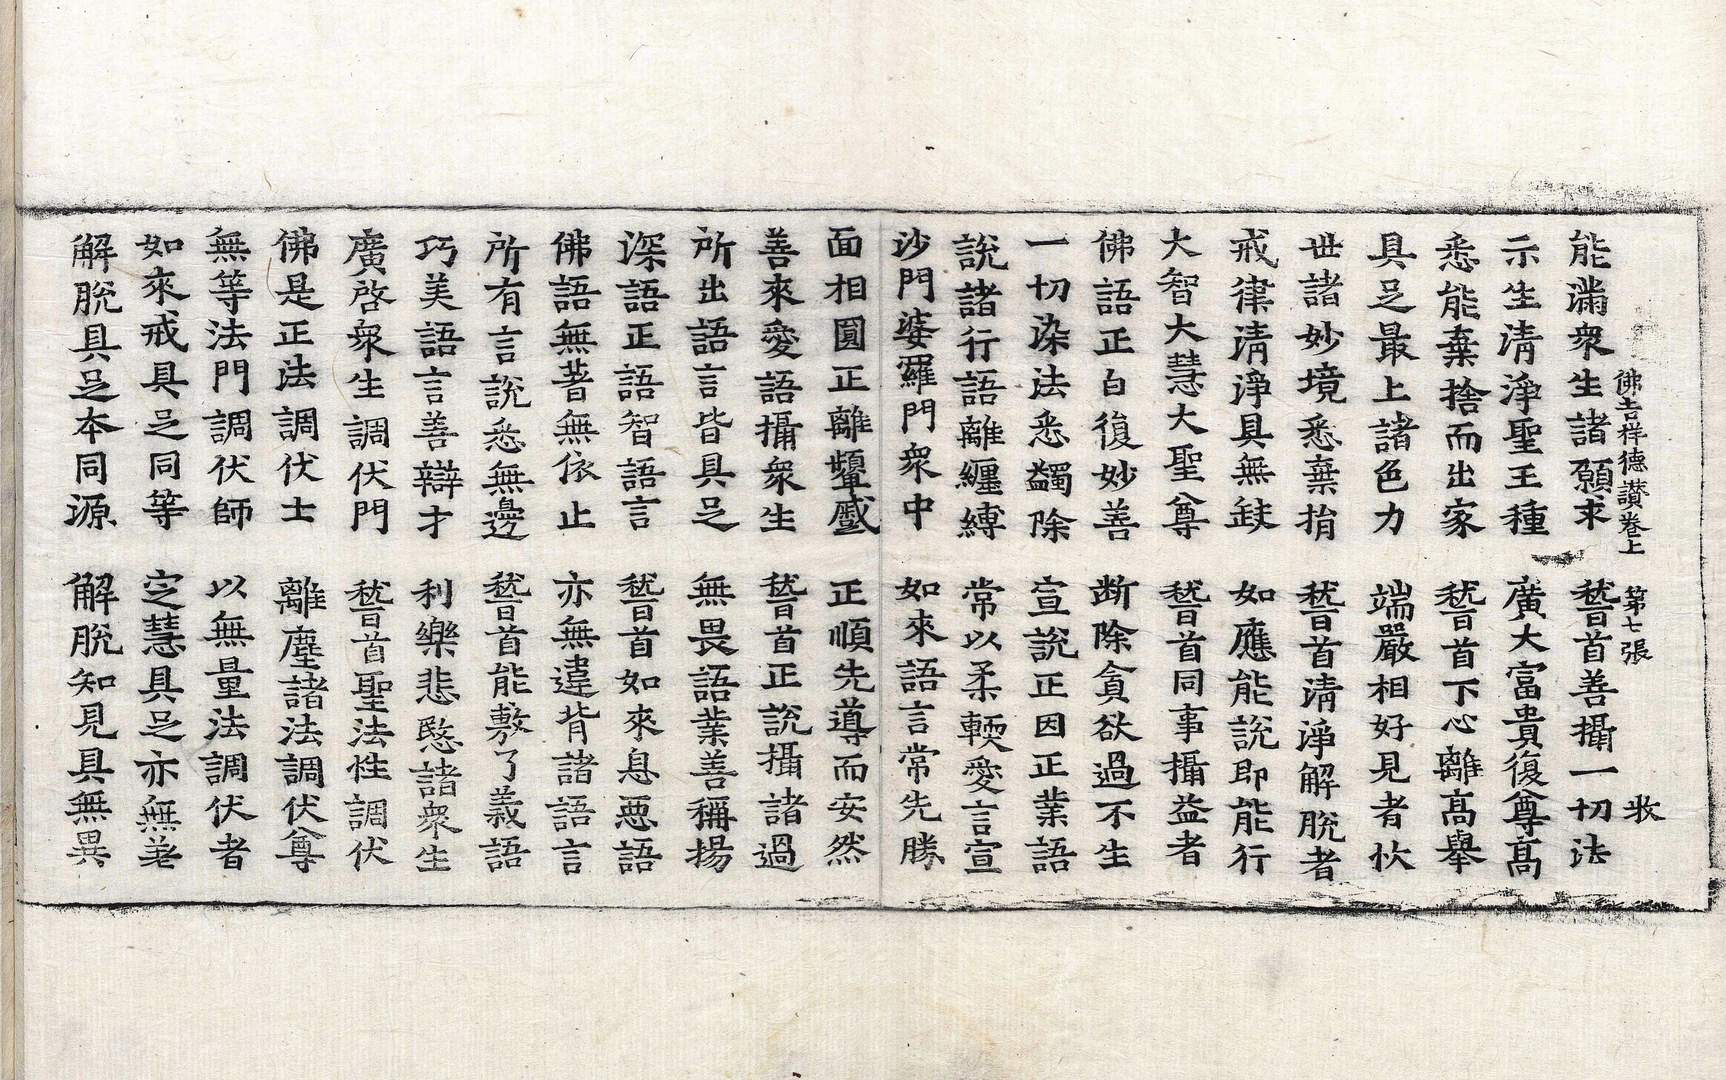 佛吉祥德讃卷上　第七張　收
能滿衆生諸願求　稽首善攝一切法
示生清淨聖王種　廣大富貴復尊高
悉能棄捨而出家　稽首下心離高舉
具足最上諸色力　端嚴相好見者忻
世諸妙境悉棄捐　稽首清淨解脫者
戒律清淨具無缺　如應能說即能行
大智大慧大聖尊　稽首同事攝益者
佛語正白復妙善　断除貪欲過不生
一切染法悉蠲除　宣說正因正業語
說諸行語離纏縛　常以柔輭愛言宣
沙門婆羅門衆中　如來語言常先勝
面相圓正離顰蹙　正順先導而安然
善來愛語攝衆生　稽首正說攝諸過
所出語言皆具足　無畏語業善稱揚
深語正語智語言　稽首如來息惡語
佛語無著無依止　亦無違背諸語言
所有言說悉無邊　稽首能敷了義語
巧美語言善辯才　利樂悲愍諸衆生
廣啓衆生調伏門　稽首聖法性調伏
佛是正法調伏士　離塵諸法調伏尊
無等法門調伏師　以無量法調伏者
如來戒具足同等　定慧具足亦無差
解脫具足本同源　解脫知見具無異